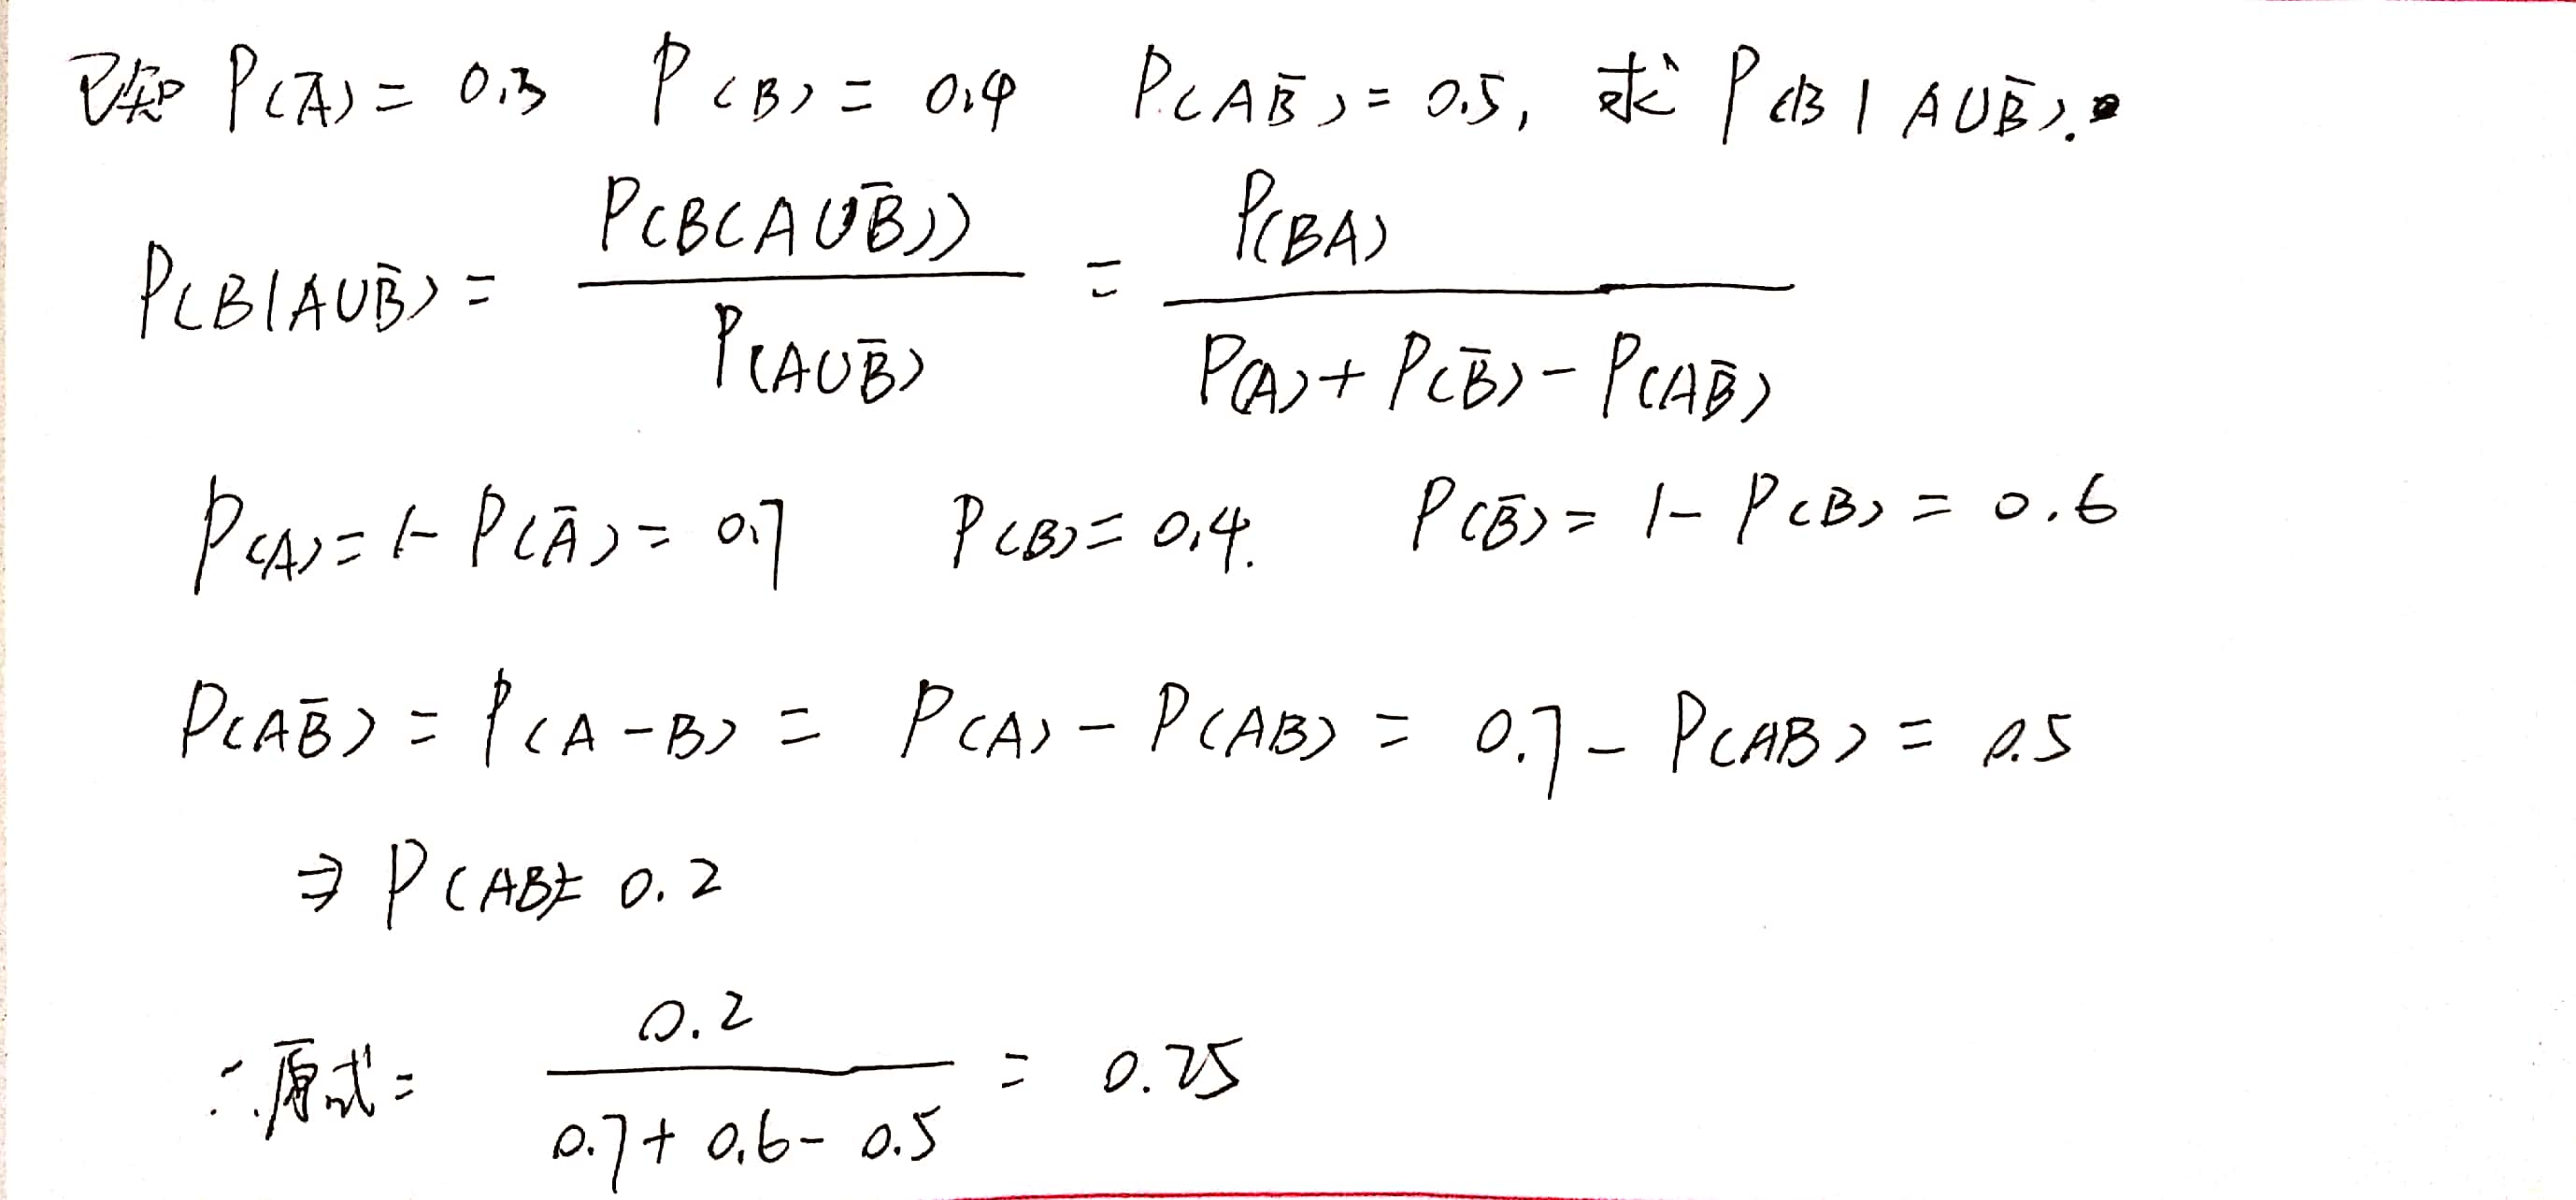 已知 P(A̅) = 0.3 P(B) = 0.4 P(AB̅) = 0.5, 求 P(B|A∪B̅).
P(B|A∪B̅) = P(B(A∪B̅)) / P(A∪B̅) = P(BA) / P(A)+P(B̅)-P(AB̅)
P(A) = 1-P(A̅) = 0.7 P(B) = 0.4. P(B̅) = 1-P(B) = 0.6
P(AB̅) = P(A-B) = P(A)-P(AB) = 0.7-P(AB) = 0.5
⇒ P(AB) = 0.2
∴原式 = 0.2 / 0.7+0.6-0.5 = 0.25